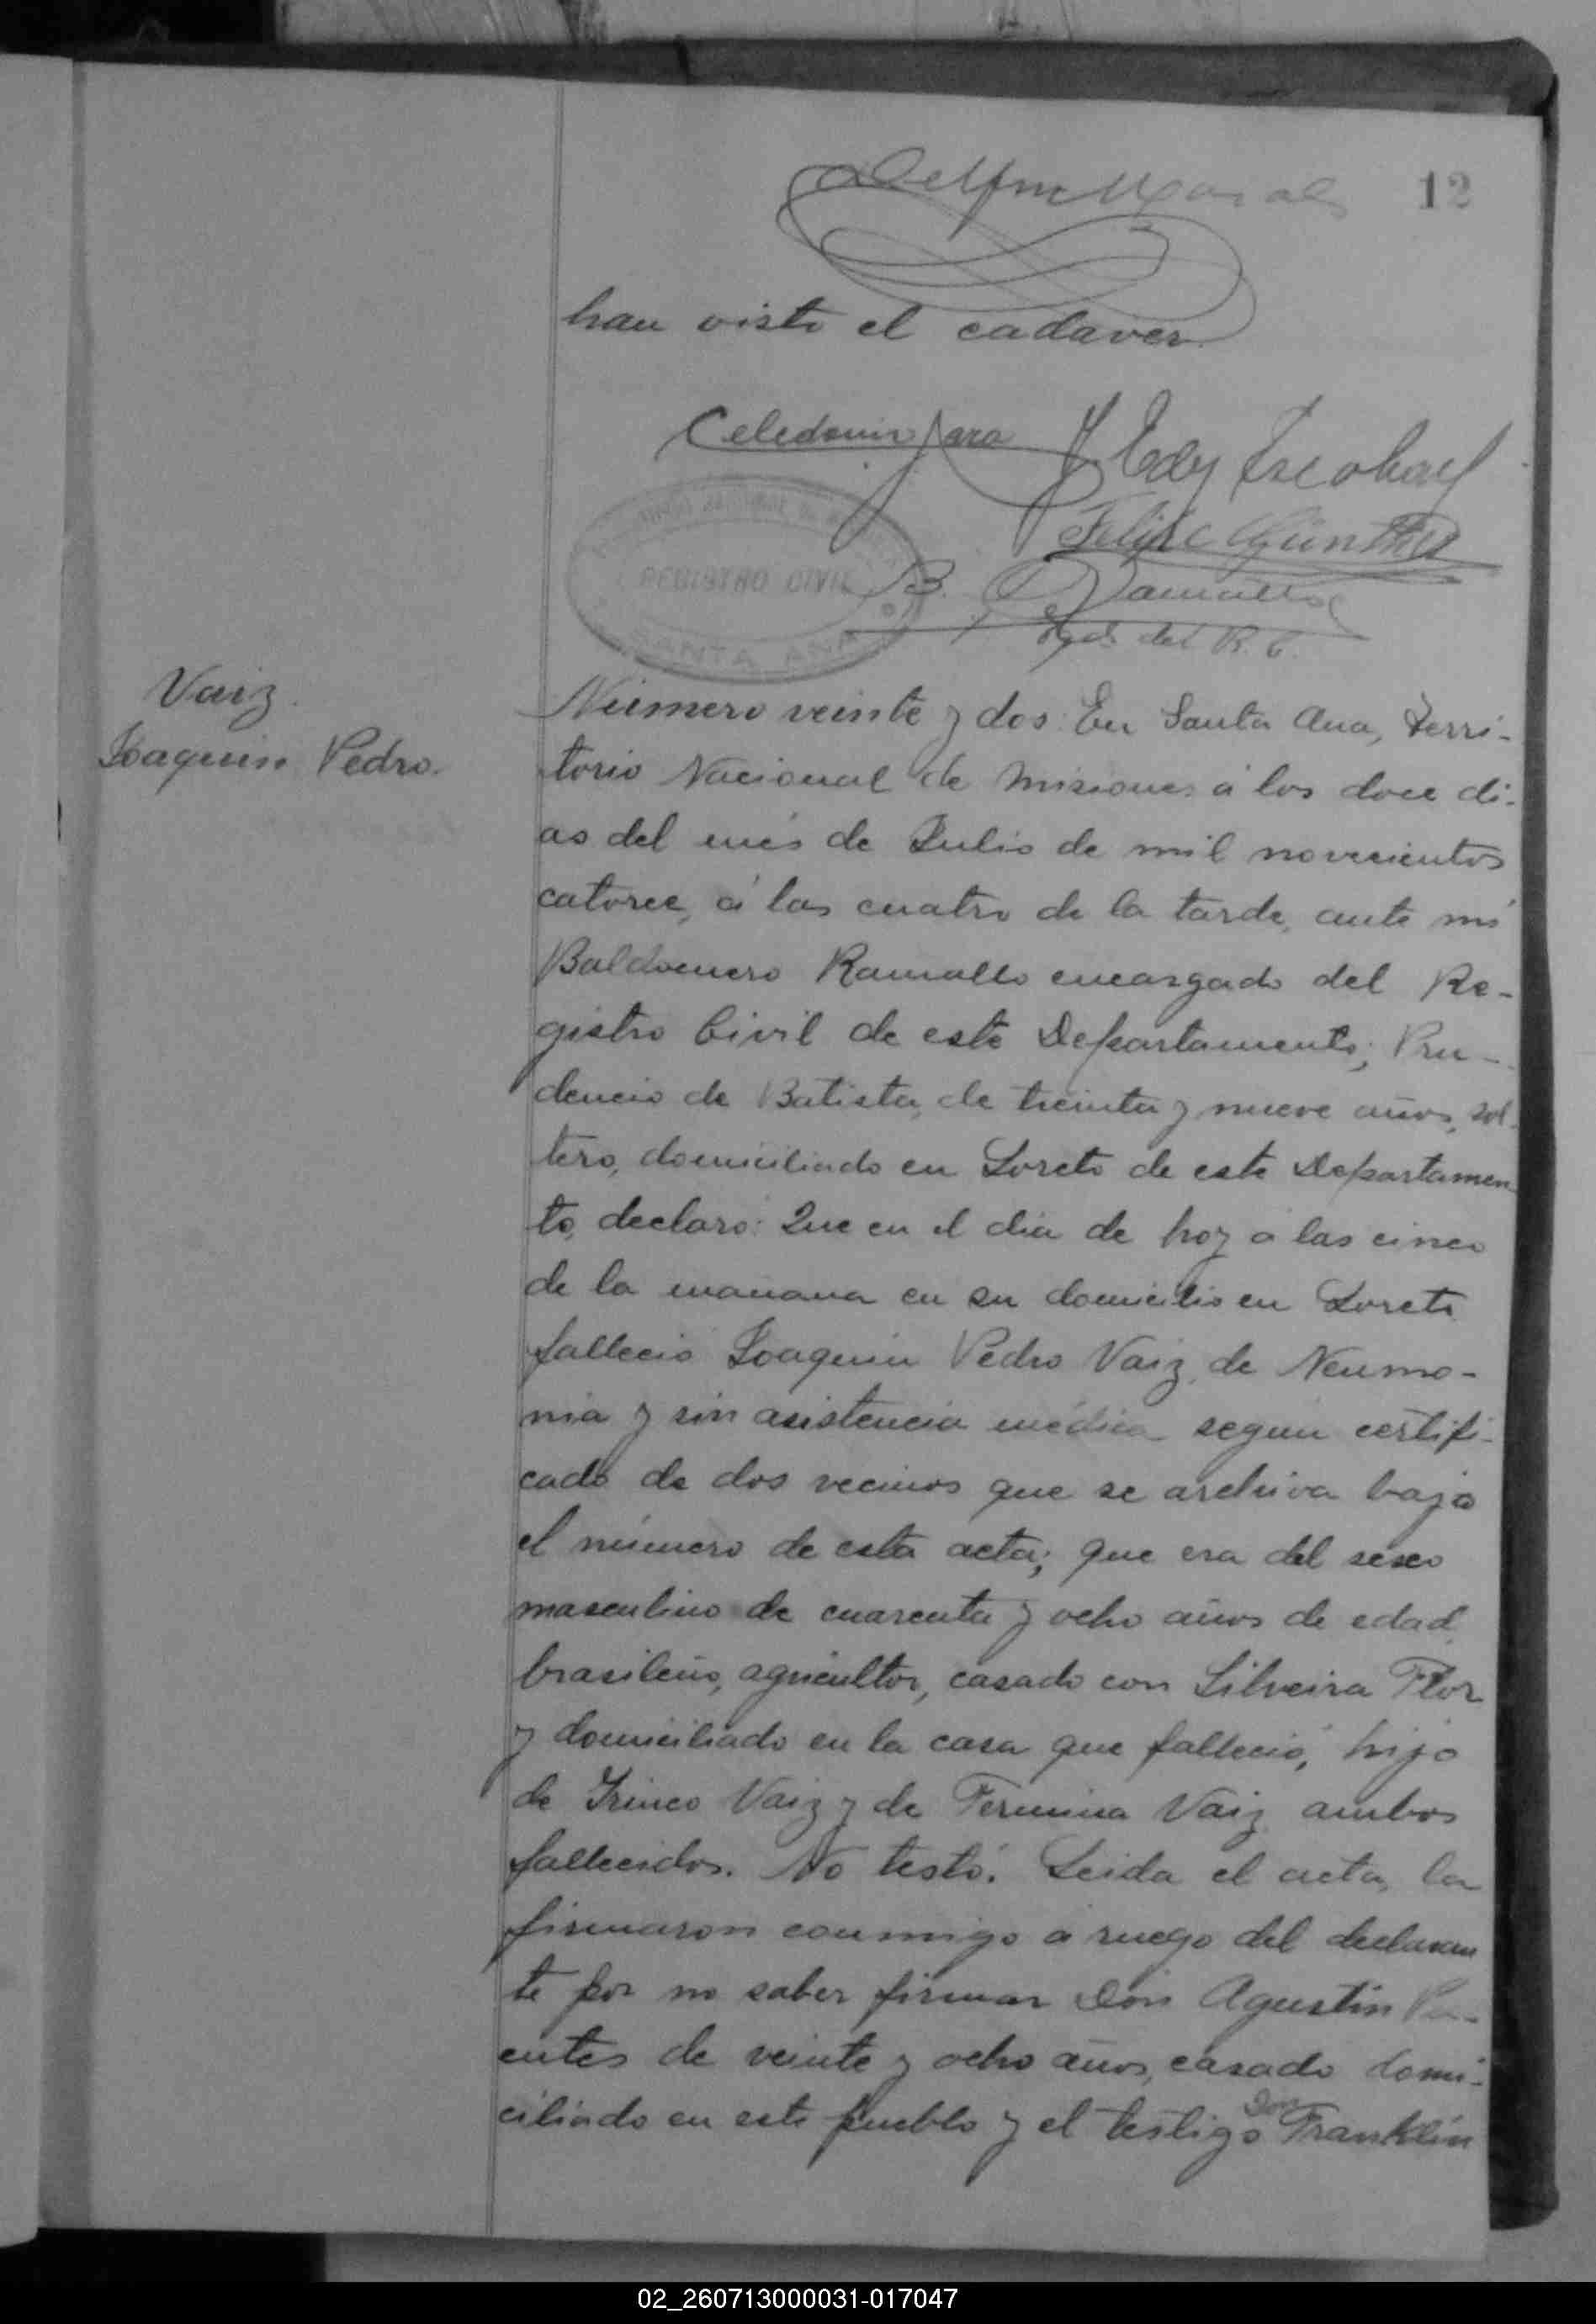 12
han visto el cadaver.
Celedonio Jara
Escobar
Felipe Günther
REGISTRO CIVIL
SANTA ANA
B. Ramallo
del R. C.
Vaiz
Joaquin Pedro.
Número veinte y dos: En Santa Ana, Terri-
torio Nacional de Misiones á los doce di-
as del més de Julio de mil novecientos
catorce, á las cuatro de la tarde, ante mi
Baldomero Ramallo encargado del Re-
gistro Civil de este Departamento; Pru-
dencio de Batista, de treinta y nueve años, sol-
tero, domiciliado en Loreto de este Departamen
to, declaró: Que en el dia de hoy a las cinco
de la mañana en su domicilio en Loreto
falleció Joaquin Pedro Vaiz, de Neumo-
nia y sin asistencia médica segun certifi-
cado de dos vecinos que se archiva bajo
el número de esta acta; que era del sexo
masculino de cuarenta y ocho años de edad,
brasileño, agricultor, casado con Silveira Flor
y domiciliado en la casa que falleció, hijo
de Irineo Vaiz y de Fermina Vaiz ambos
fallecidos. No testó. Leida el acta, la
firmaron conmigo á ruego del declaran
te por no saber firmar Don Agustin
entes de veinte y ocho años, casado domi-
ciliado en este pueblo y el testigo Don Franklin
02_260713000031-017047